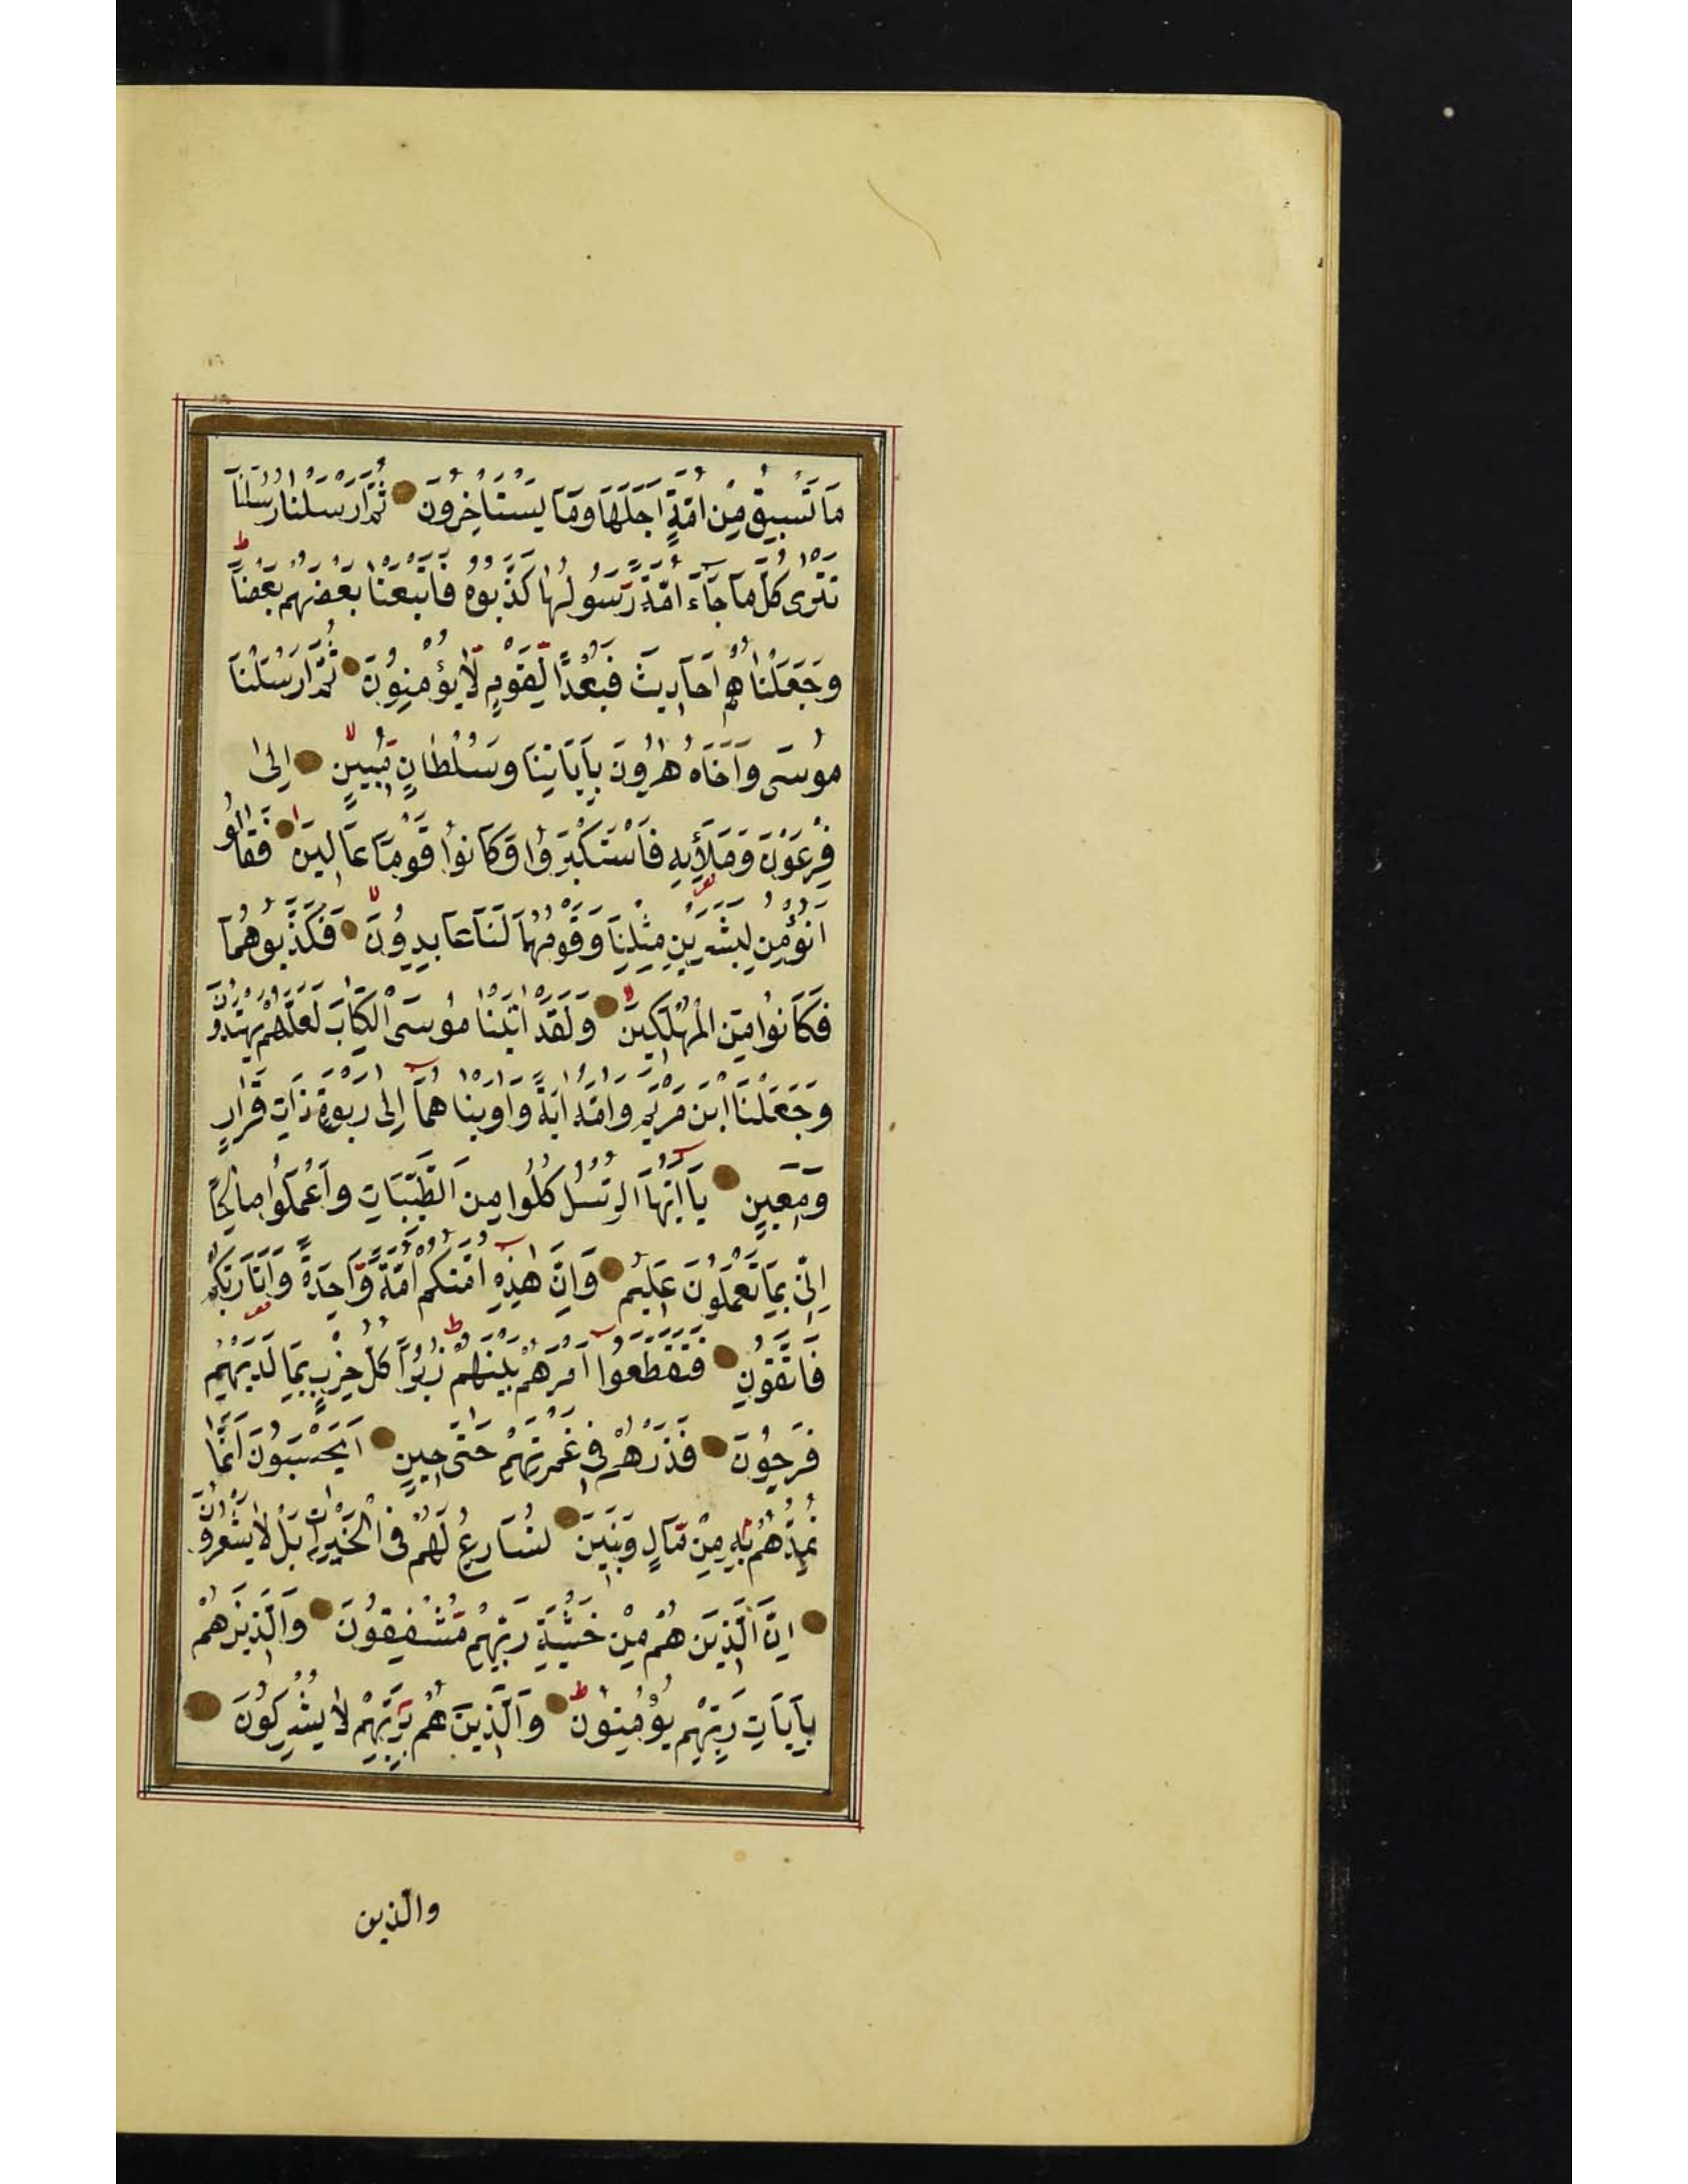 مَا تَسْبِقُ مِنْ اُمَّةٍ اَجَلَهَا وَمَا يَسْتَاْخِرُونَ ثُمَّ اَرْسَلْنَا رُسُلَنَا
تَتْرٰى كُلَّ مَا جَآءَ اُمَّةً رَّسُولُهَا كَذَّبُوهُ فَاَتْبَعْنَا بَعْضَهُمْ بَعْضًا ط
وَجَعَلْنَاهُمْ اَحَادِيثَ فَبُعْدًا لِّقَوْمٍ لَّا يُؤْمِنُونَ ثُمَّ اَرْسَلْنَا
مُوسٰى وَاَخَاهُ هٰرُونَ بِاٰيَاتِنَا وَسُلْطَانٍ مُّبِينٍ لا اِلٰى
فِرْعَوْنَ وَمَلَأِيهِ فَاسْتَكْبَرُوا وَكَانُوا قَوْمًا عَالِينَ فَقَالُوا
اَنُؤْمِنُ لِبَشَرَيْنِ مِثْلِنَا وَقَوْمُهُمَا لَنَا عَابِدُونَ لا فَكَذَّبُوهُمَا
فَكَانُوا مِنَ الْمُهْلَكِينَ وَلَقَدْ اٰتَيْنَا مُوسَى الْكِتَابَ لَعَلَّهُمْ يَهْتَدُونَ
وَجَعَلْنَا ابْنَ مَرْيَمَ وَاُمَّهُ اٰيَةً وَاٰوَيْنَاهُمَا اِلٰى رَبْوَةٍ ذَاتِ قَرَارٍ
وَمَعِينٍ يَا اَيُّهَا الرُّسُلُ كُلُوا مِنَ الطَّيِّبَاتِ وَاعْمَلُوا صَالِحًا
اِنِّي بِمَا تَعْمَلُونَ عَلِيمٌ وَاِنَّ هٰذِهِ اُمَّتُكُمْ اُمَّةً وَّاحِدَةً وَاَنَا رَبُّكُمْ
فَاتَّقُونِ فَتَقَطَّعُوا اَمْرَهُمْ بَيْنَهُمْ زُبُرًا ط كُلُّ حِزْبٍ بِمَا لَدَيْهِمْ
فَرِحُونَ فَذَرْهُمْ فِي غَمْرَتِهِمْ حَتّٰى حِينٍ اَيَحْسَبُونَ اَنَّمَا
نُمِدُّهُمْ بِهِ مِنْ مَّالٍ وَبَنِينَ نُسَارِعُ لَهُمْ فِي الْخَيْرَاتِ بَلْ لَا يَشْعُرُونَ
اِنَّ الَّذِينَ هُمْ مِنْ خَشْيَةِ رَبِّهِمْ مُشْفِقُونَ وَالَّذِينَ هُمْ
بِاٰيَاتِ رَبِّهِمْ يُؤْمِنُونَ ط وَالَّذِينَ هُمْ بِرَبِّهِمْ لَا يُشْرِكُونَ
والذين